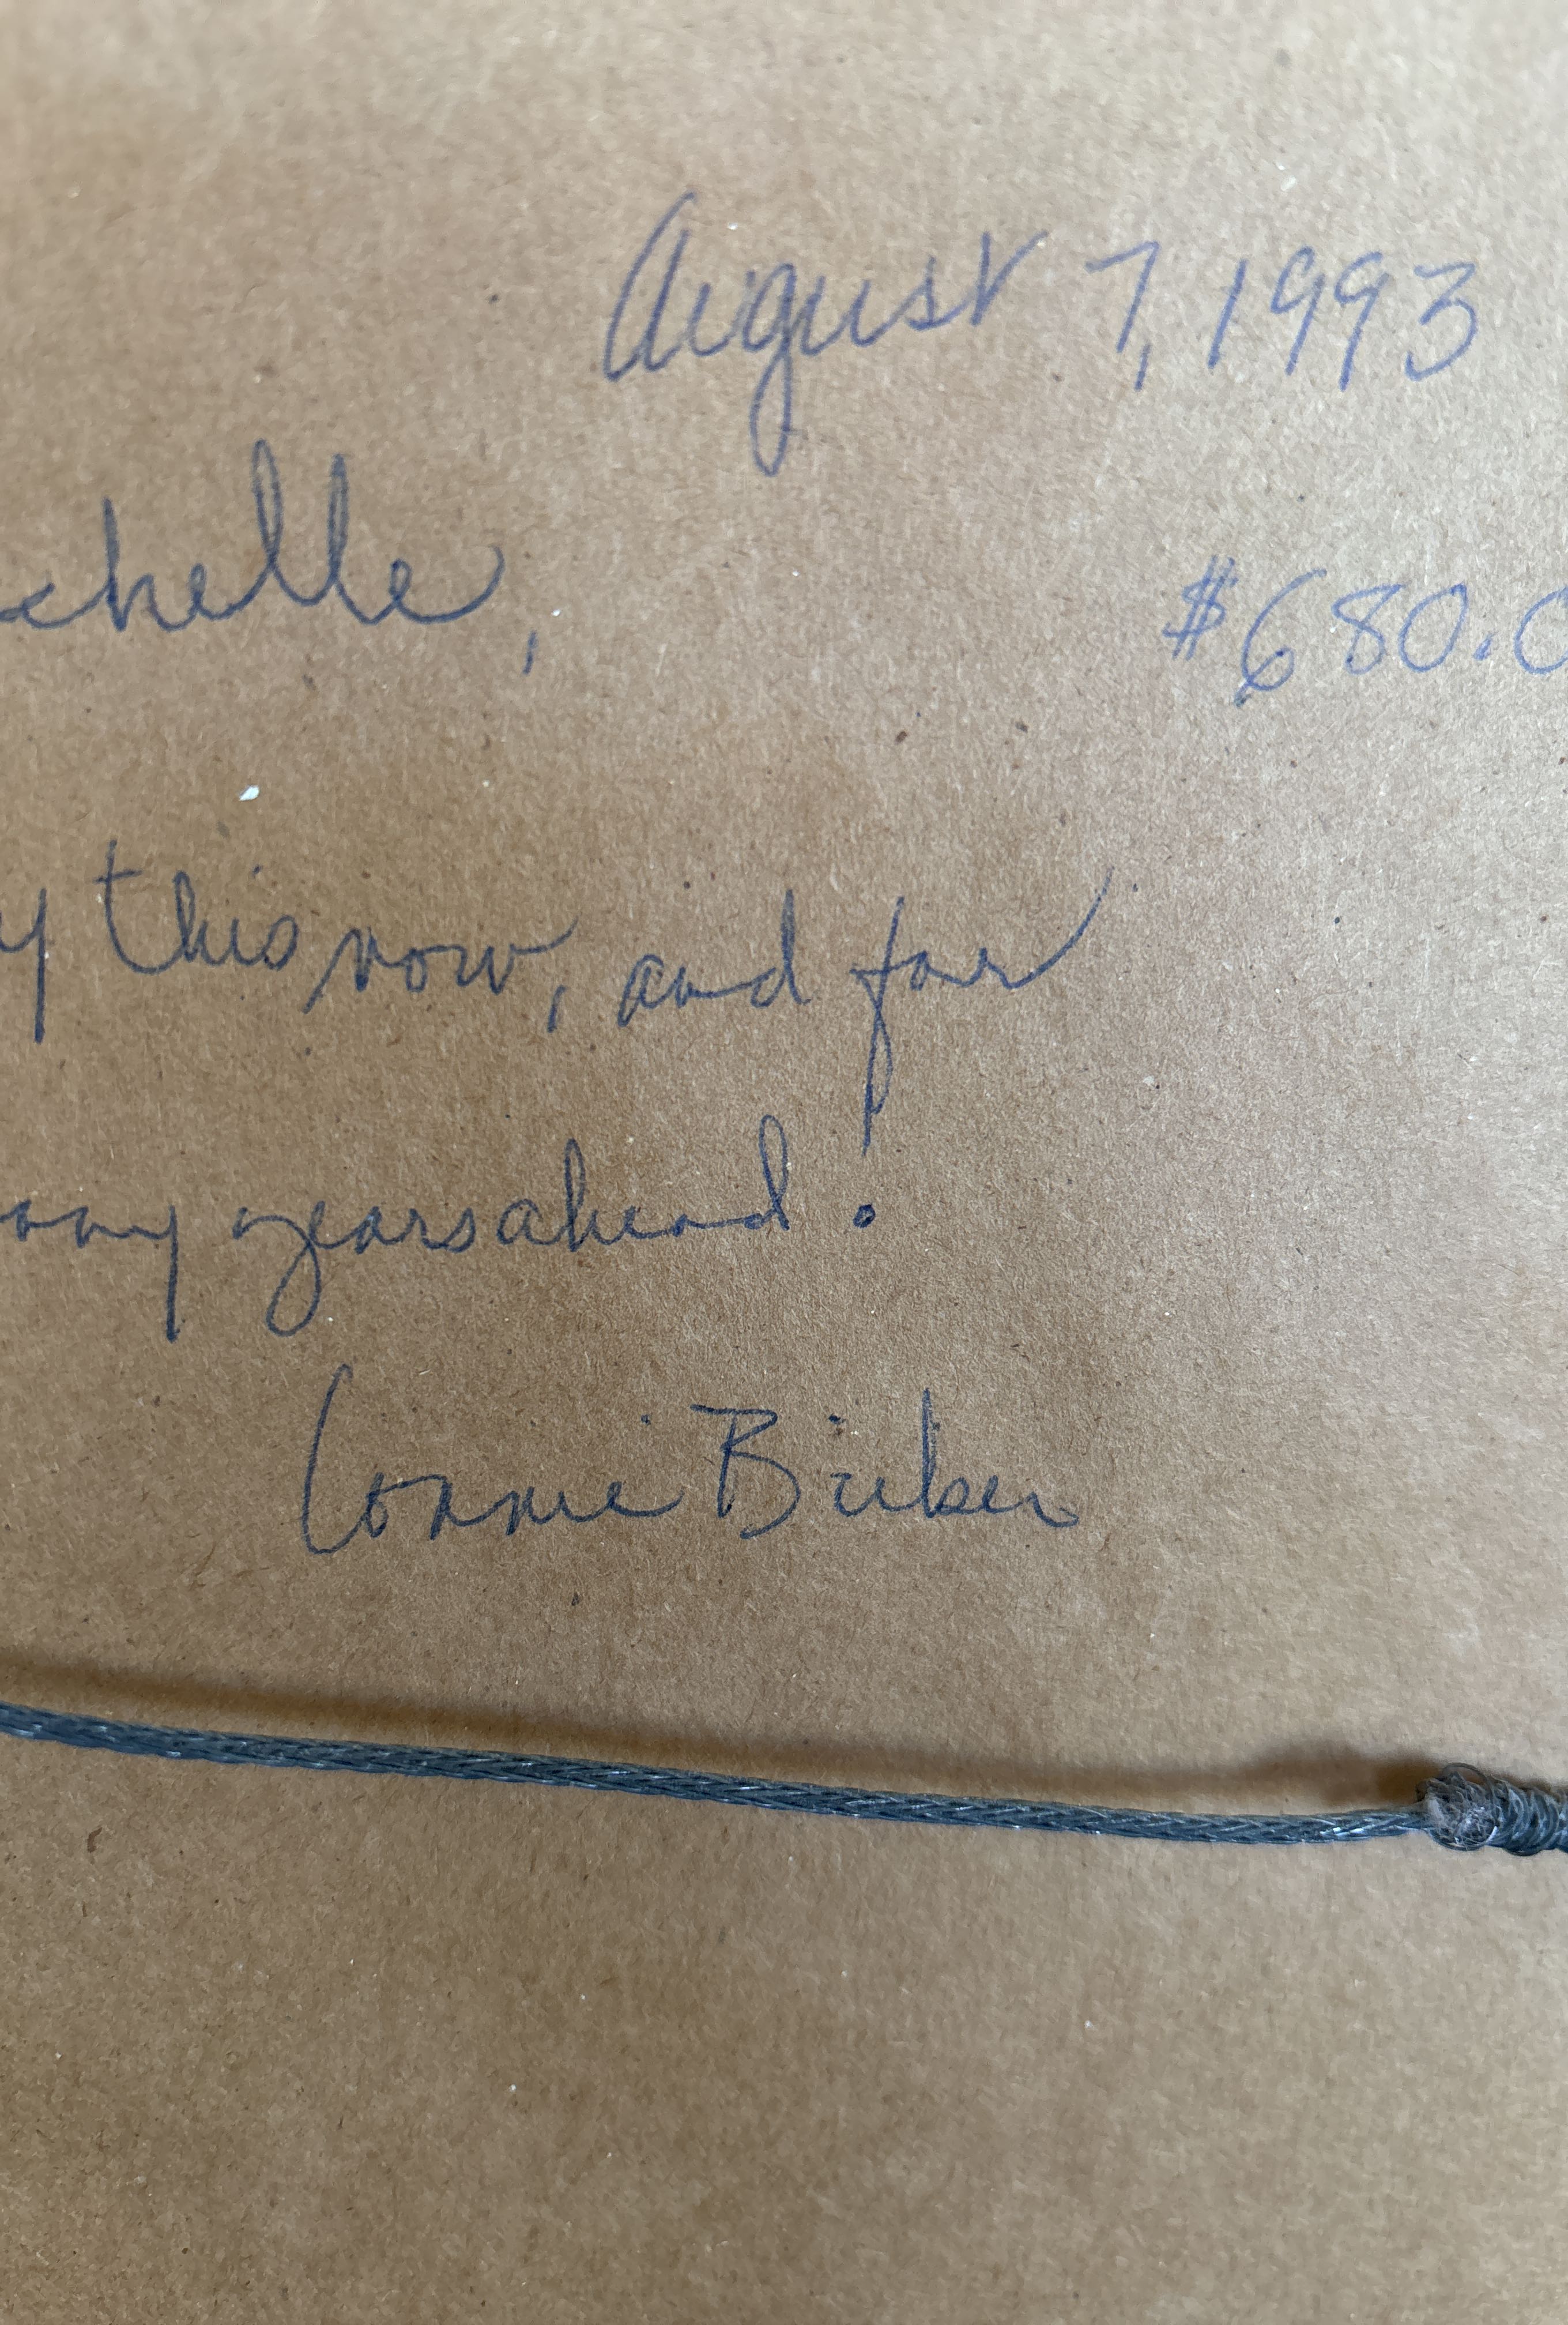 August 7, 1993
chelle,
$680.0
y this now, and for
any years ahead!
Connie Bieber